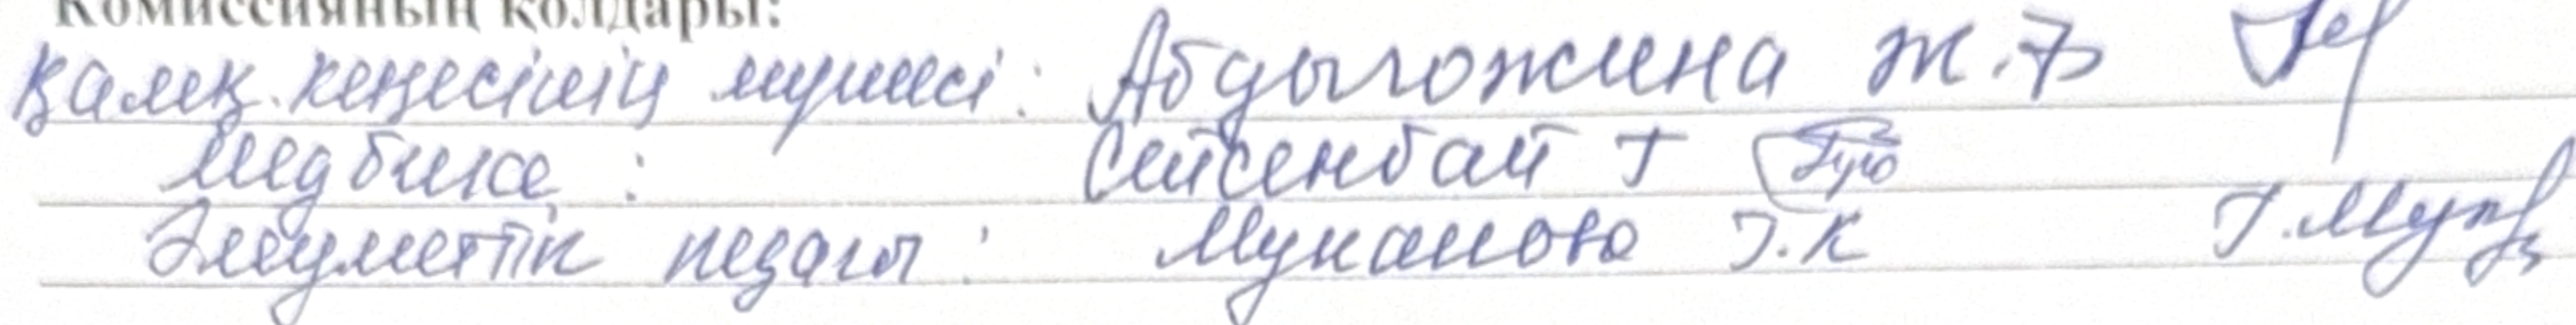 Комиссияның қолдары:
Қамқ. кеңесінің мүшесі: Абдыгожина Ж.Б
Медбике: Сейсенбай Т
Әлеуметтік педагог: Муканова Г.К Г.Мук